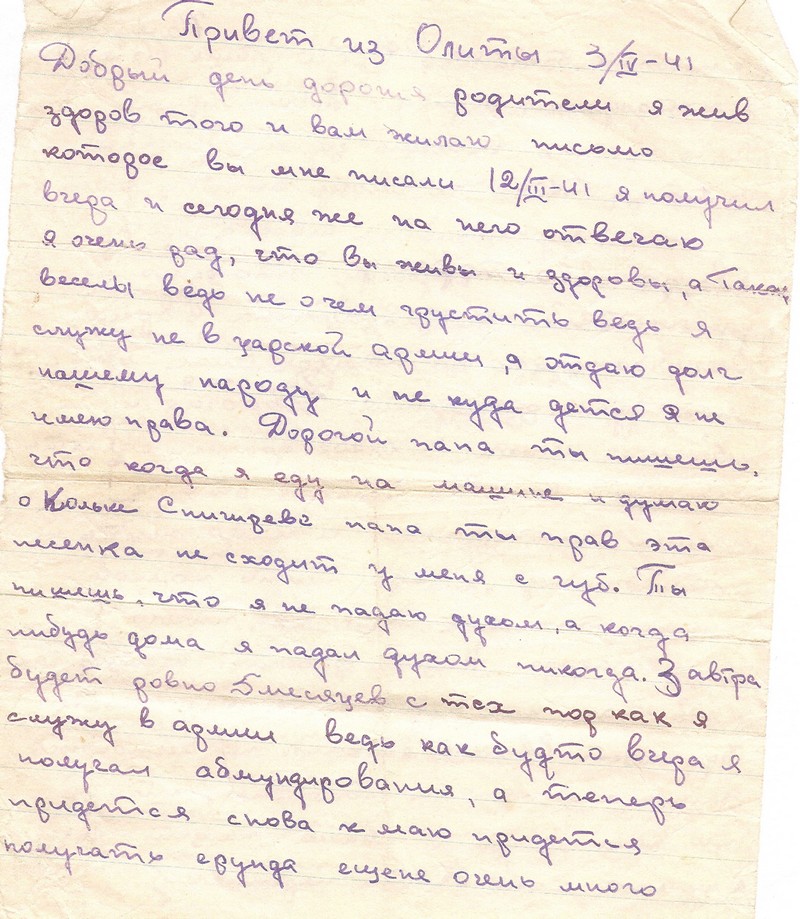 Привет из Олиты 3/IV-41
Добрый день дорогия родители я жив
здоров того и вам жилаю писмо
которое вы мне писали 12/III-41 я получил
вчера и сегодня же на него отвечаю
я очень рад, что вы живы и здоровы, а
веселы ведь не о чем грустить ведь я
служу не в царской армии, я отдаю долг
нашему народу и не куда дется я не
имею права. Дорогой папа ты пишешь,
что когда я еду на машине и думаю
о Кольке Снигиреве папа ты прав эта
песенка не сходит у меня с губ. Ты
пишешь, что я не падаю духом, а когда
нибудь дома я падал духом никогда. Завтра
будет ровно 5 месяцев с тех пор как я
служу в армии ведь как будто вчера я
получал абмундирования, а теперь
придется снова к маю придется
получать ерунда ещене очень много